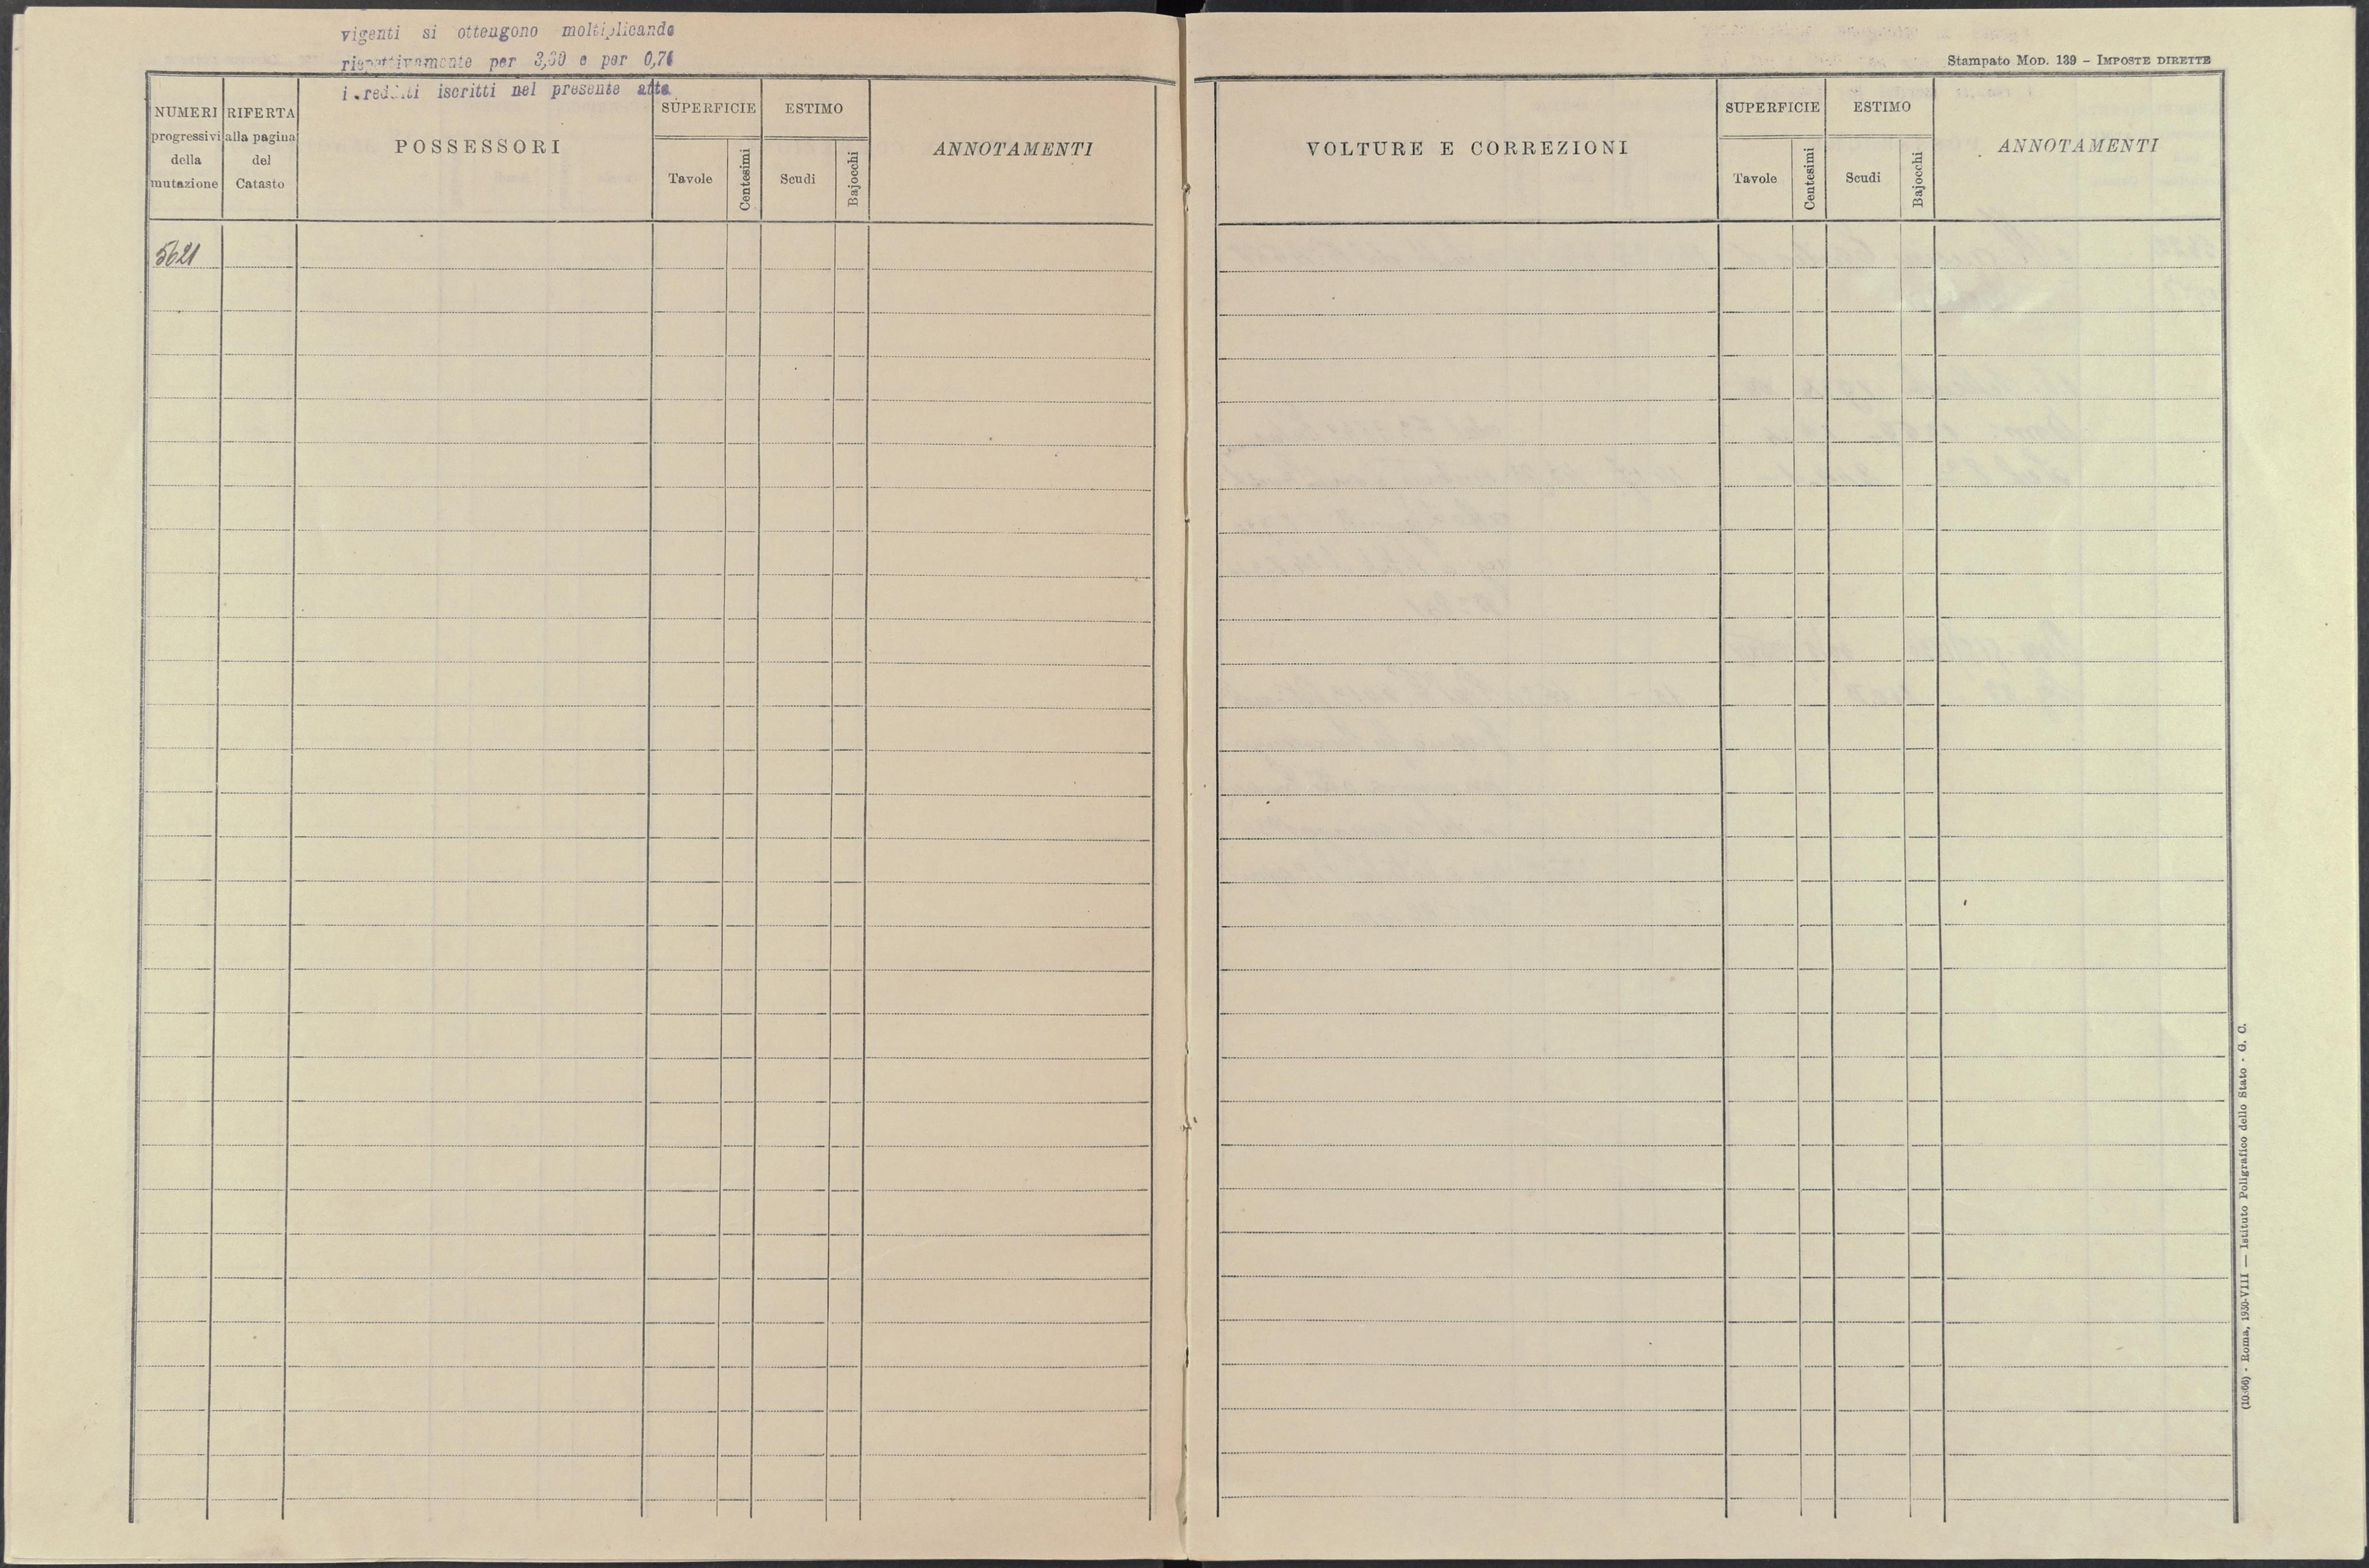 vigenti si ottengono moltiplicando
rispettivamente per 3,60 e per
i redditi iscritti nel presente atto
NUMERI
progressivi
della
mutazione
RIFERTA
alla pagina
del
Catasto
POSSESSORI
SUPERFICIE
Tavole
Centesimi
ESTIMO
Scudi
Bajocchi
ANNOTAMENTI
5621
Stampato MOD. 139 – IMPOSTE DIRETTE
VOLTURE E CORREZIONI
SUPERFICIE
Tavole
Centesimi
ESTIMO
Scudi
Bajocchi
ANNOTAMENTI
(10:66) - Roma, 1930-VIII — Istituto Poligrafico dello Stato - G. C.